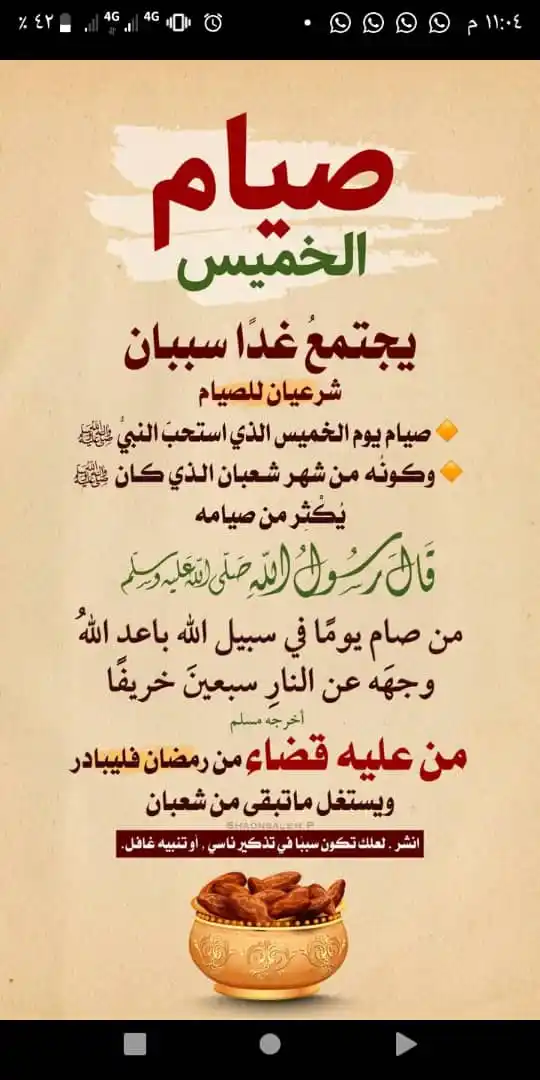 ١١:٠٤ م
4G 4G ٤٢ ٪
صيام
الخميس
يجتمعُ غدًا سببان
شرعيان للصيام
صيام يوم الخميس الذي استحبَ النبيُّ ﷺ
وكونُه من شهر شعبان الذي كان ﷺ
يُكْثِر من صيامه
قَالَ رَسُولُ اللّهِ صَلّى اللّهُ عَلَيْهِ وَسَلّم
من صام يومًا في سبيل الله باعد اللهُ
وجهَه عن النارِ سبعينَ خريفًا
أخرجه مسلم
من عليه قضاء من رمضان فليبادر
ويستغل ماتبقى من شعبان
SHAONSALEH.P
انشر . لعلك تكون سببًا في تذكير ناسي , أو تنبيه غافل.